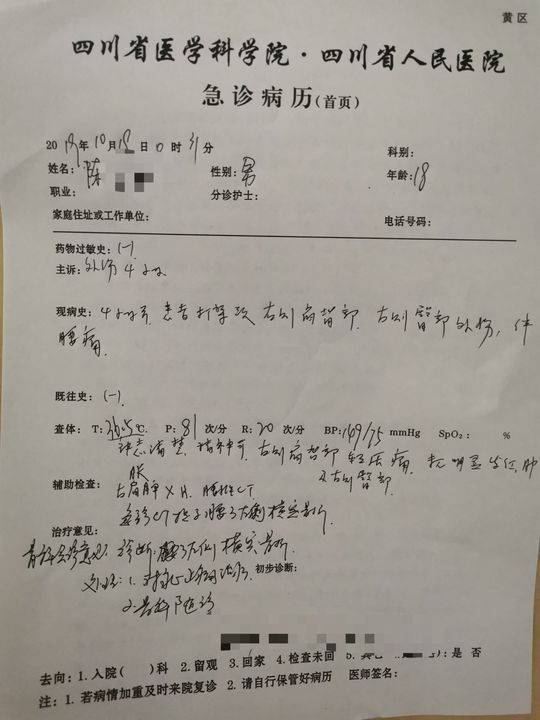 黄区
四川省医学科学院·四川省人民医院
急诊病历(首页)
2019年10月18日0时31分 科别:
姓名:陈 性别:男 年龄:18
职业: 分诊护士:
家庭住址或工作单位: 电话号码:
药物过敏史:(-)
主诉:外伤4小时
现病史:4小时前患者打架致右侧肩背部、右侧臀部外伤,伴
腰痛
既往史:(-).
查体: T:36.5℃. P:81次/分 R:20次/分 BP:149/75mmHg SpO₂: %
神志清楚 精神可 右侧肩背部 轻压痛 无明显 肿
胀 右侧臀部
辅助检查: 右肩胛X片. 腰椎CT
急诊CT 腰 左侧横突骨折
治疗意见:
骨科会诊意见: 诊断 腰 左侧横突骨折
处理: 1. 对症止痛治疗 初步诊断:
2. 骨科随诊
去向: 1. 入院( )科 2. 留观 3. 回家 4. 检查未回 5. : 是 否
注: 1. 若病情加重及时来院复诊 2. 请自行保管好病历 医师签名: